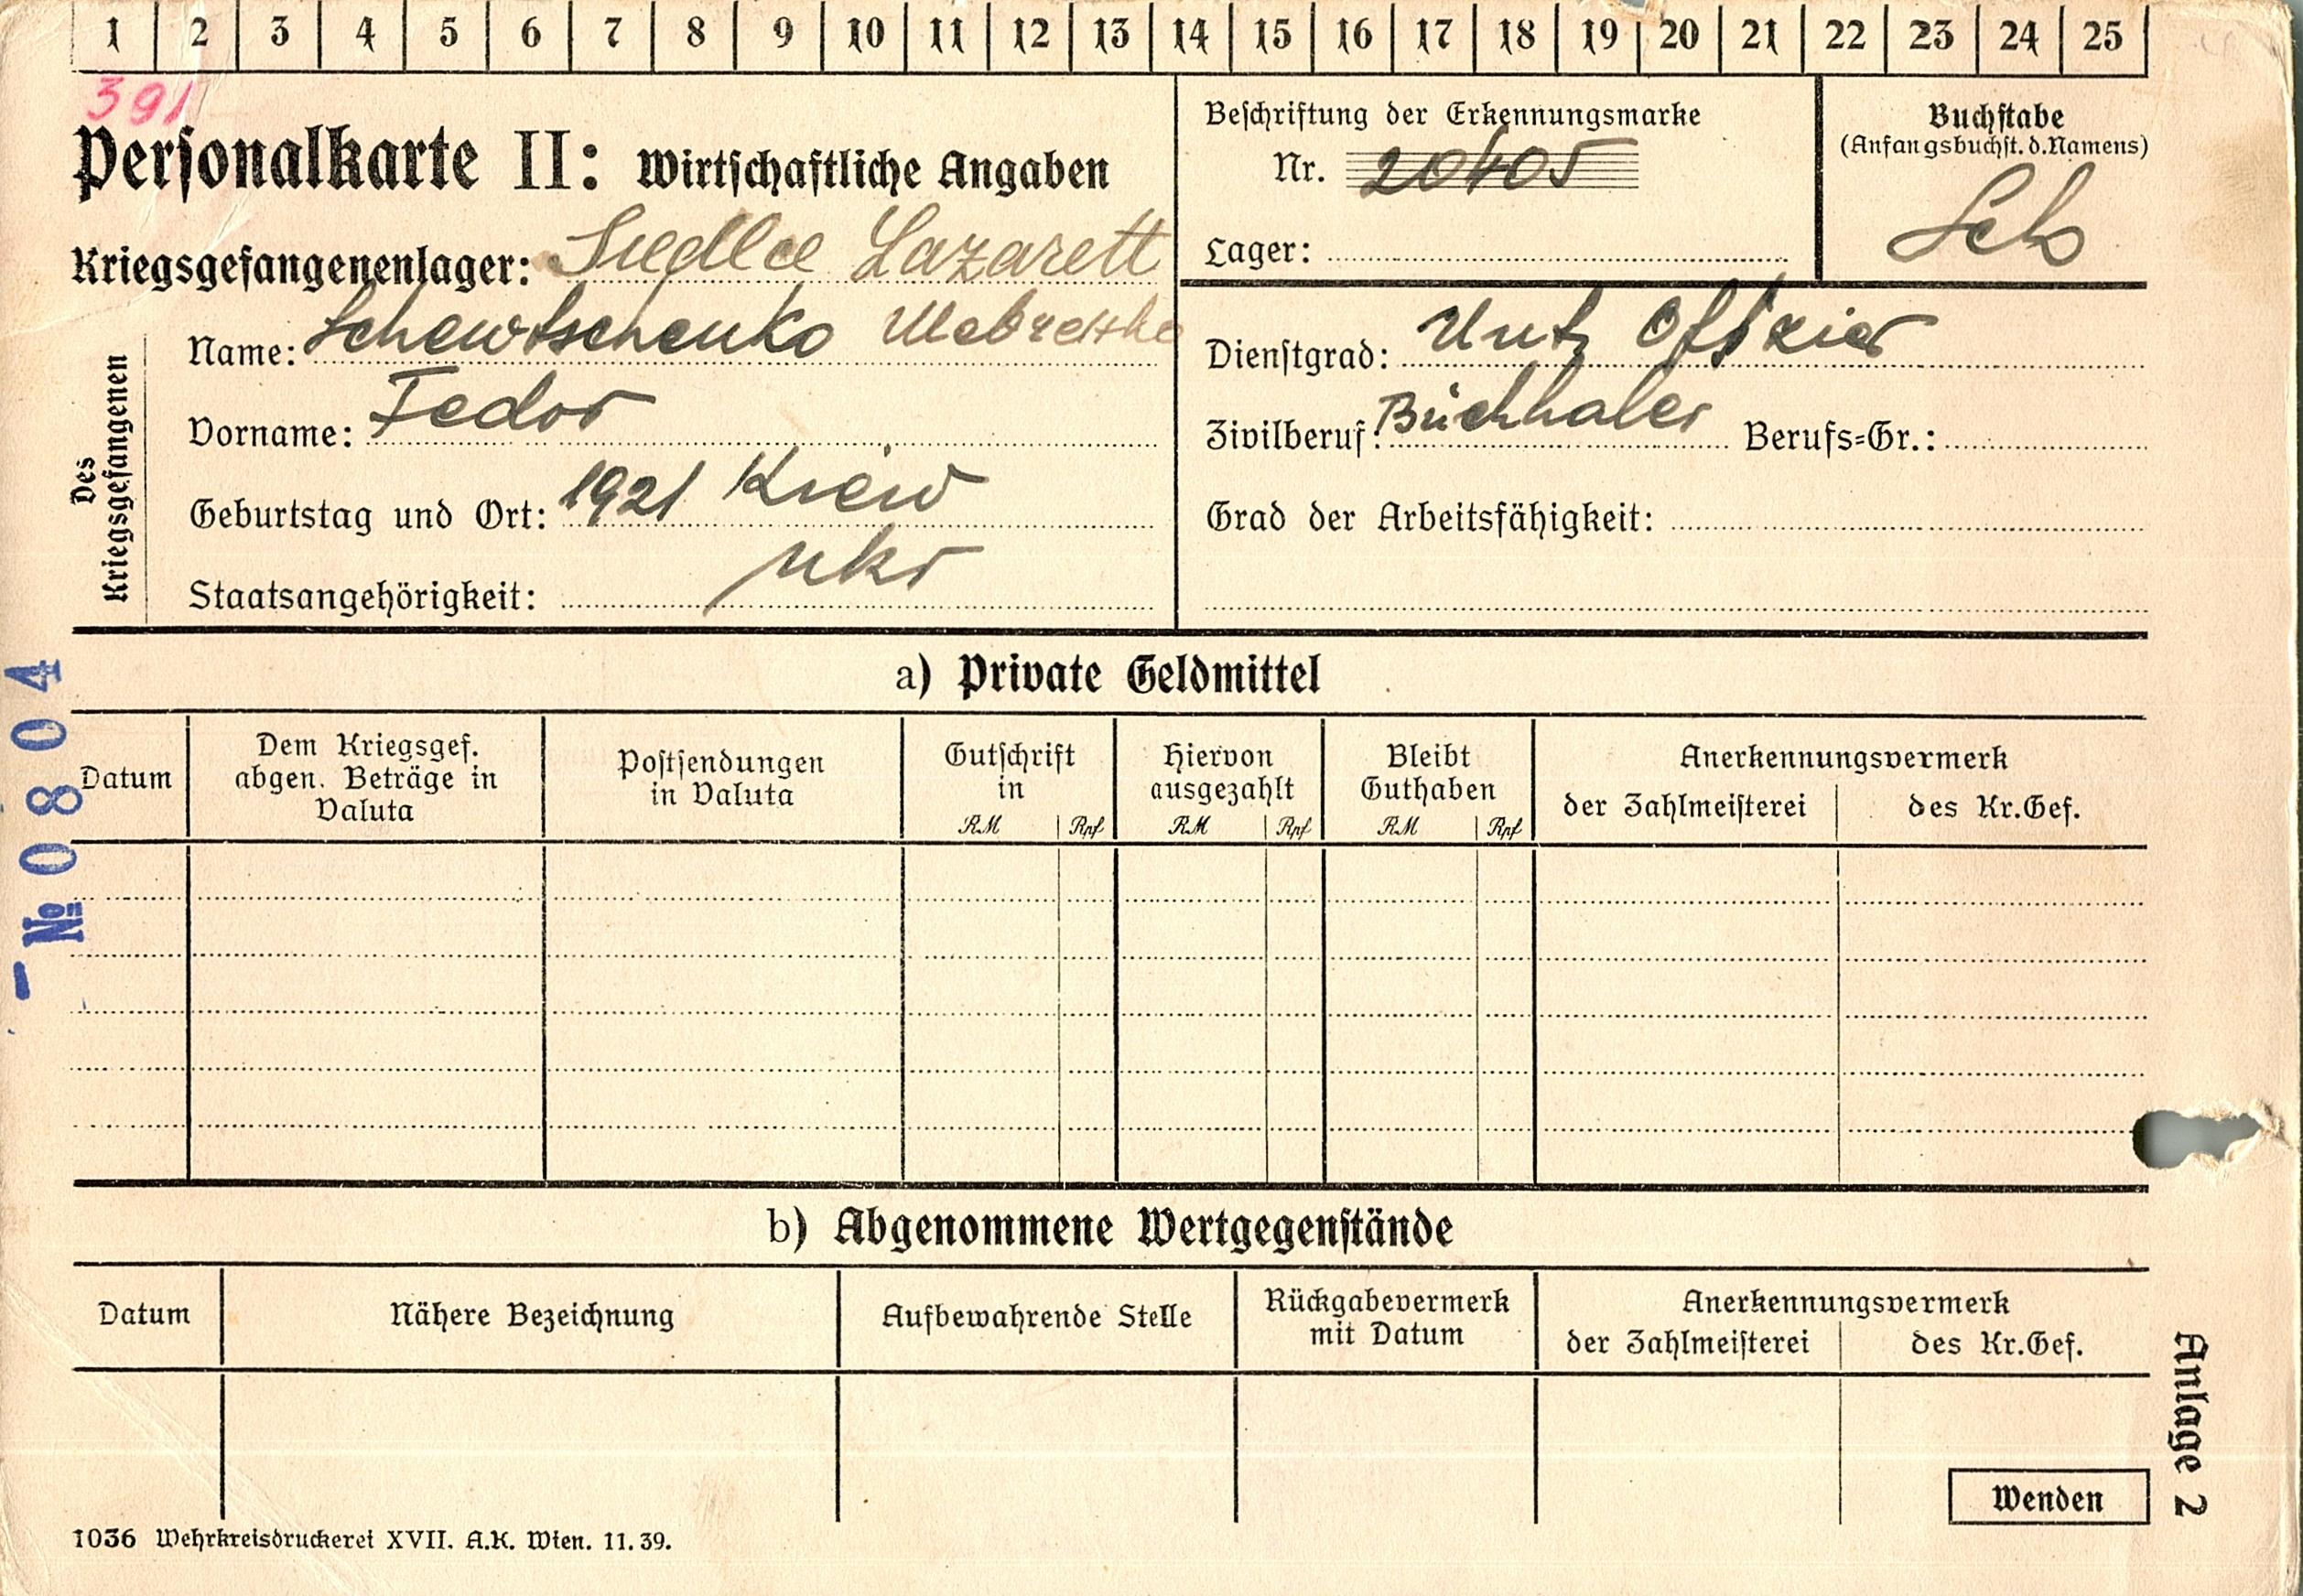 1 2 3 4 5 6 7 8 9 10 11 12 13 14 15 16 17 18 19 20 21 22 23 24 25
391
Personalkarte II: Wirtschaftliche Angaben
Kriegsgefangenenlager: Siedlce Lazarett
Des Kriegsgefangenen
Name: Schewtschenko
Vorname: Fedor
Geburtstag und Ort: 1921 Kiew
Staatsangehörigkeit: ukr
Beschriftung der Erkennungsmarke
Nr. 20405
Lager:
Buchstabe
(Anfangsbuchst. d. Namens)
Sch
Dienstgrad: Unt. Offizier
Zivilberuf: Buchhalter Berufs-Gr.:
Grad der Arbeitsfähigkeit:
№ 0804
a) Private Geldmittel
Datum
Dem Kriegsgef.
abgen. Beträge in
Valuta
Postsendungen
in Valuta
Gutschrift
in
RM Rpf
Hiervon
ausgezahlt
RM Rpf
Bleibt
Guthaben
RM Rpf
Anerkennungsvermerk
der Zahlmeisterei des Kr.Gef.
b) Abgenommene Wertgegenstände
Datum
Nähere Bezeichnung
Aufbewahrende Stelle
Rückgabevermerk
mit Datum
Anerkennungsvermerk
der Zahlmeisterei des Kr.Gef.
Anlage 2
Wenden
1036 Wehrkreisdruckerei XVII. A.K. Wien. 11.39.